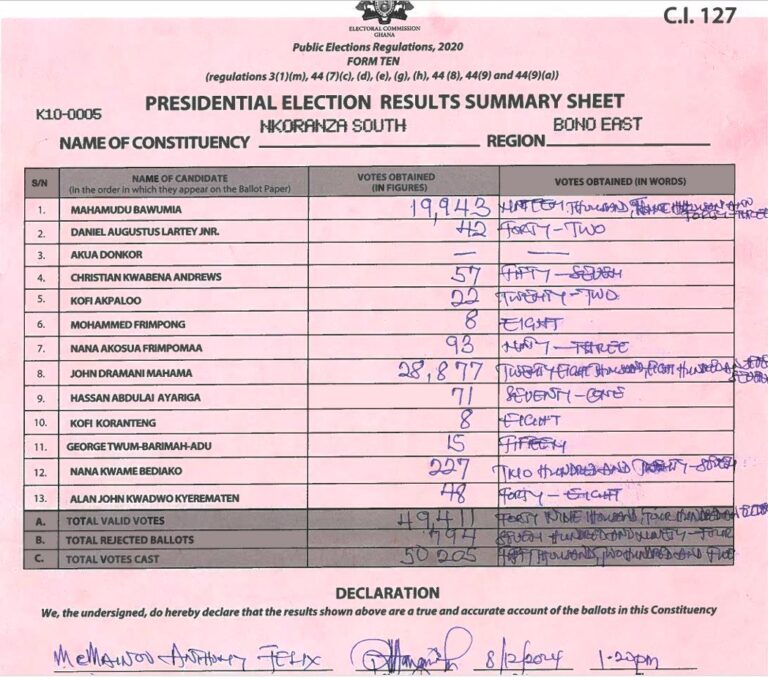 C.I. 127
ELECTORAL COMMISSION
GHANA
Public Elections Regulations, 2020
FORM TEN
(regulations 3(1)(m), 44 (7)(c), (d), (e), (g), (h), 44 (8), 44(9) and 44(9)(a))
PRESIDENTIAL ELECTION RESULTS SUMMARY SHEET
K10-0005
NAME OF CONSTITUENCY NKORANZA SOUTH REGION BONO EAST
S/N NAME OF CANDIDATE (In the order in which they appear on the Ballot Paper) VOTES OBTAINED (IN FIGURES) VOTES OBTAINED (IN WORDS)
1. MAHAMUDU BAWUMIA 19,943 THOUSAND, FORTY-THREE
2. DANIEL AUGUSTUS LARTEY JNR. 42 FORTY-TWO
3. AKUA DONKOR — —
4. CHRISTIAN KWABENA ANDREWS 57 FIFTY-SEVEN
5. KOFI AKPALOO 22 TWENTY-TWO
6. MOHAMMED FRIMPONG 8 EIGHT
7. NANA AKOSUA FRIMPOMAA 93 -THREE
8. JOHN DRAMANI MAHAMA 28,877 TWENTY EIGHT EIGHT HUNDRED AND
9. HASSAN ABDULAI AYARIGA 71 SEVENTY-ONE
10. KOFI KORANTENG 8 EIGHT
11. GEORGE TWUM-BARIMAH-ADU 15 FIFTEEN
12. NANA KWAME BEDIAKO 227 TWO HUNDRED AND TWENTY-SEVEN
13. ALAN JOHN KWADWO KYEREMATEN 48 FORTY-EIGHT
A. TOTAL VALID VOTES 49,411 FORTY NINE FOUR HUNDRED AND
B. TOTAL REJECTED BALLOTS 794 SEVEN HUNDRED AND NINETY-FOUR
C. TOTAL VOTES CAST 50 205 TWO HUNDRED AND FIVE
DECLARATION
We, the undersigned, do hereby declare that the results shown above are a true and accurate account of the ballots in this Constituency
ANTHONY FELIX 8/12/2024 1:20pm